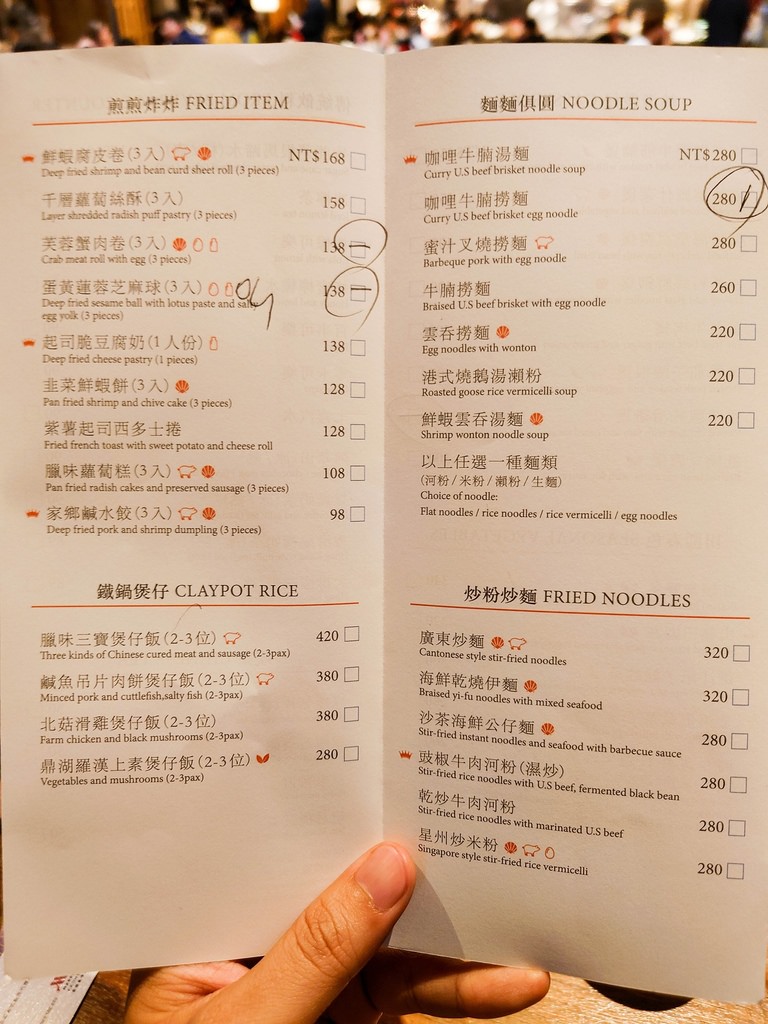 煎煎炸炸 FRIED ITEM
鮮蝦腐皮卷(3入) NT$168
Deep fried shrimp and bean curd sheet roll (3 pieces)
千層蘿蔔絲酥(3入) 158
Layer shredded radish puff pastry (3 pieces)
芙蓉蟹肉卷(3入) 138
Crab meat roll with egg (3 pieces)
蛋黃蓮蓉芝麻球(3入) 138
Deep fried sesame ball with lotus paste and salty
egg yolk (3 pieces)
起司脆豆腐奶(1人份) 138
Deep fried cheese pastry (1 pieces)
韭菜鮮蝦餅(3入) 128
Pan fried shrimp and chive cake (3 pieces)
紫薯起司西多士捲 128
Fried french toast with sweet potato and cheese roll
臘味蘿蔔糕(3入) 108
Pan fried radish cakes and preserved sausage (3 pieces)
家鄉鹹水餃(3入) 98
Deep fried pork and shrimp dumpling (3 pieces)
鐵鍋煲仔 CLAYPOT RICE
臘味三寶煲仔飯(2-3位) 420
Three kinds of Chinese cured meat and sausage (2-3pax)
鹹魚吊片肉餅煲仔飯(2-3位) 380
Minced pork and cuttlefish,salty fish (2-3pax)
北菇滑雞煲仔飯(2-3位) 380
Farm chicken and black mushrooms (2-3pax)
鼎湖羅漢上素煲仔飯(2-3位) 280
Vegetables and mushrooms (2-3pax)
麵麵俱圓 NOODLE SOUP
咖哩牛腩湯麵 NT$280
Curry U.S beef brisket noodle soup
咖哩牛腩撈麵 280 1
Curry U.S beef brisket egg noodle
蜜汁叉燒撈麵 280
Barbeque pork with egg noodle
牛腩撈麵 260
Braised U.S beef brisket with egg noodle
雲吞撈麵 220
Egg noodles with wonton
港式燒鵝湯瀨粉 220
Roasted goose rice vermicelli soup
鮮蝦雲吞湯麵 220
Shrimp wonton noodle soup
以上任選一種麵類
(河粉/米粉/瀨粉/生麵)
Choice of noodle:
Flat noodles / rice noodles / rice vermicelli / egg noodles
炒粉炒麵 FRIED NOODLES
廣東炒麵 320
Cantonese style stir-fried noodles
海鮮乾燒伊麵 320
Braised yi-fu noodles with mixed seafood
沙茶海鮮公仔麵 280
Stir-fried instant noodles and seafood with barbecue sauce
豉椒牛肉河粉(濕炒) 280
Stir-fried rice noodles with U.S beef, fermented black bean
乾炒牛肉河粉 280
Stir-fried rice noodles with marinated U.S beef
星州炒米粉 280
Singapore style stir-fried rice vermicelli